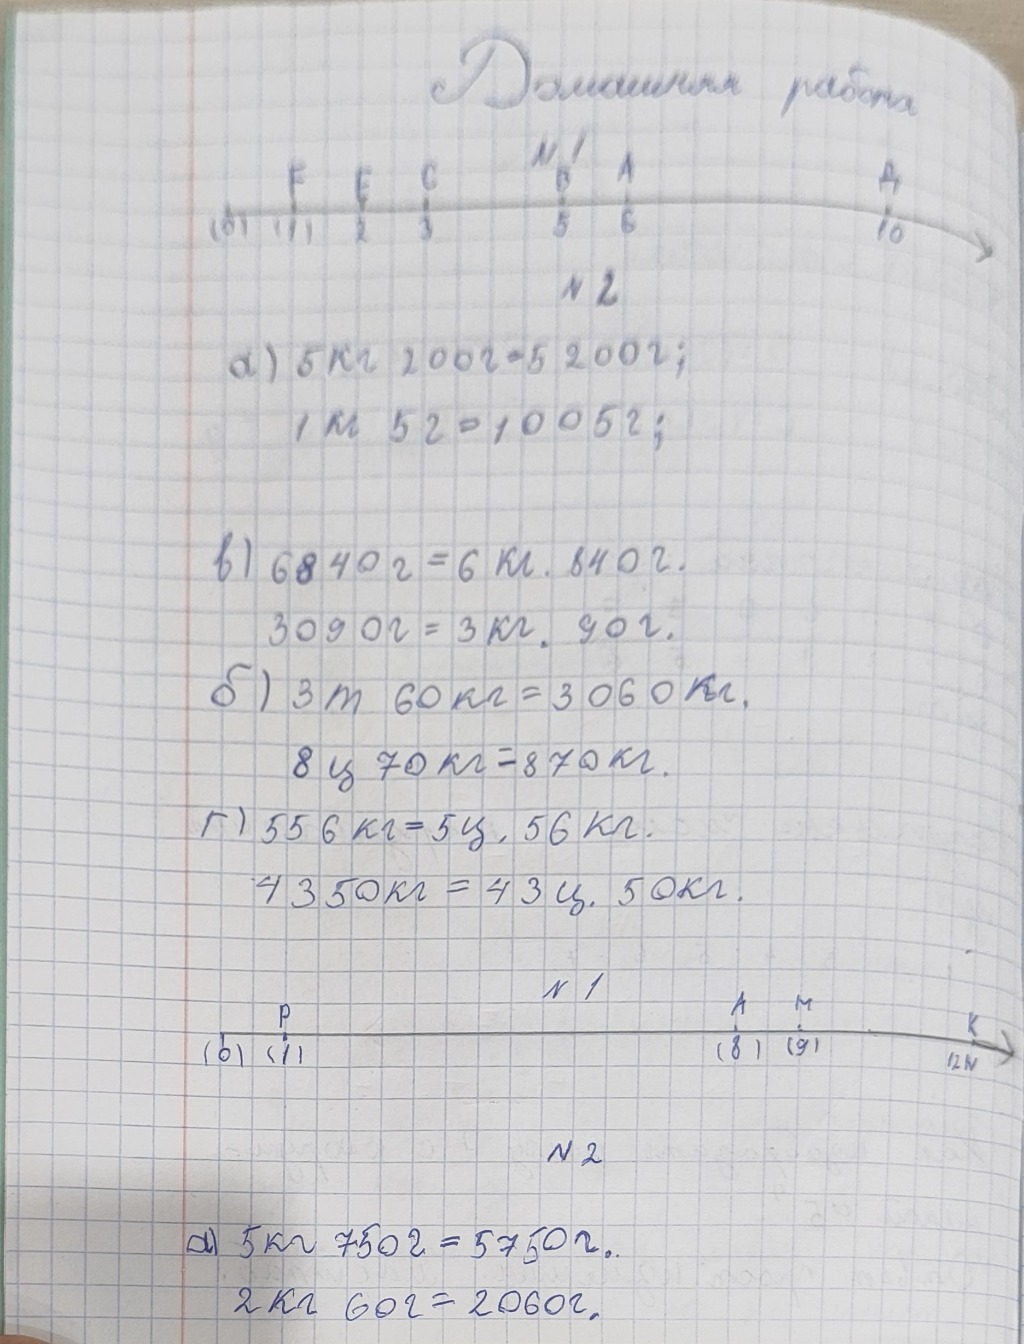 Домашняя работа
N 1
F E C B A Д
(0) (1) 2 3 5 6 10
N 2
а) 5кг 200г=5200г;
1кг 5г=1005г;
в) 6840г=6 кг. 840г.
3090г=3кг. 90г.
б) 3т 60кг=3060кг.
8ц 70кг=870кг.
г) 556кг=5ц. 56кг.
4350кг=43ц. 50кг.
N 1
P A M K
(0) (1) (8) (9) 12N
N 2
а) 5кг 750г=5750г..
2кг 60г=2060г.